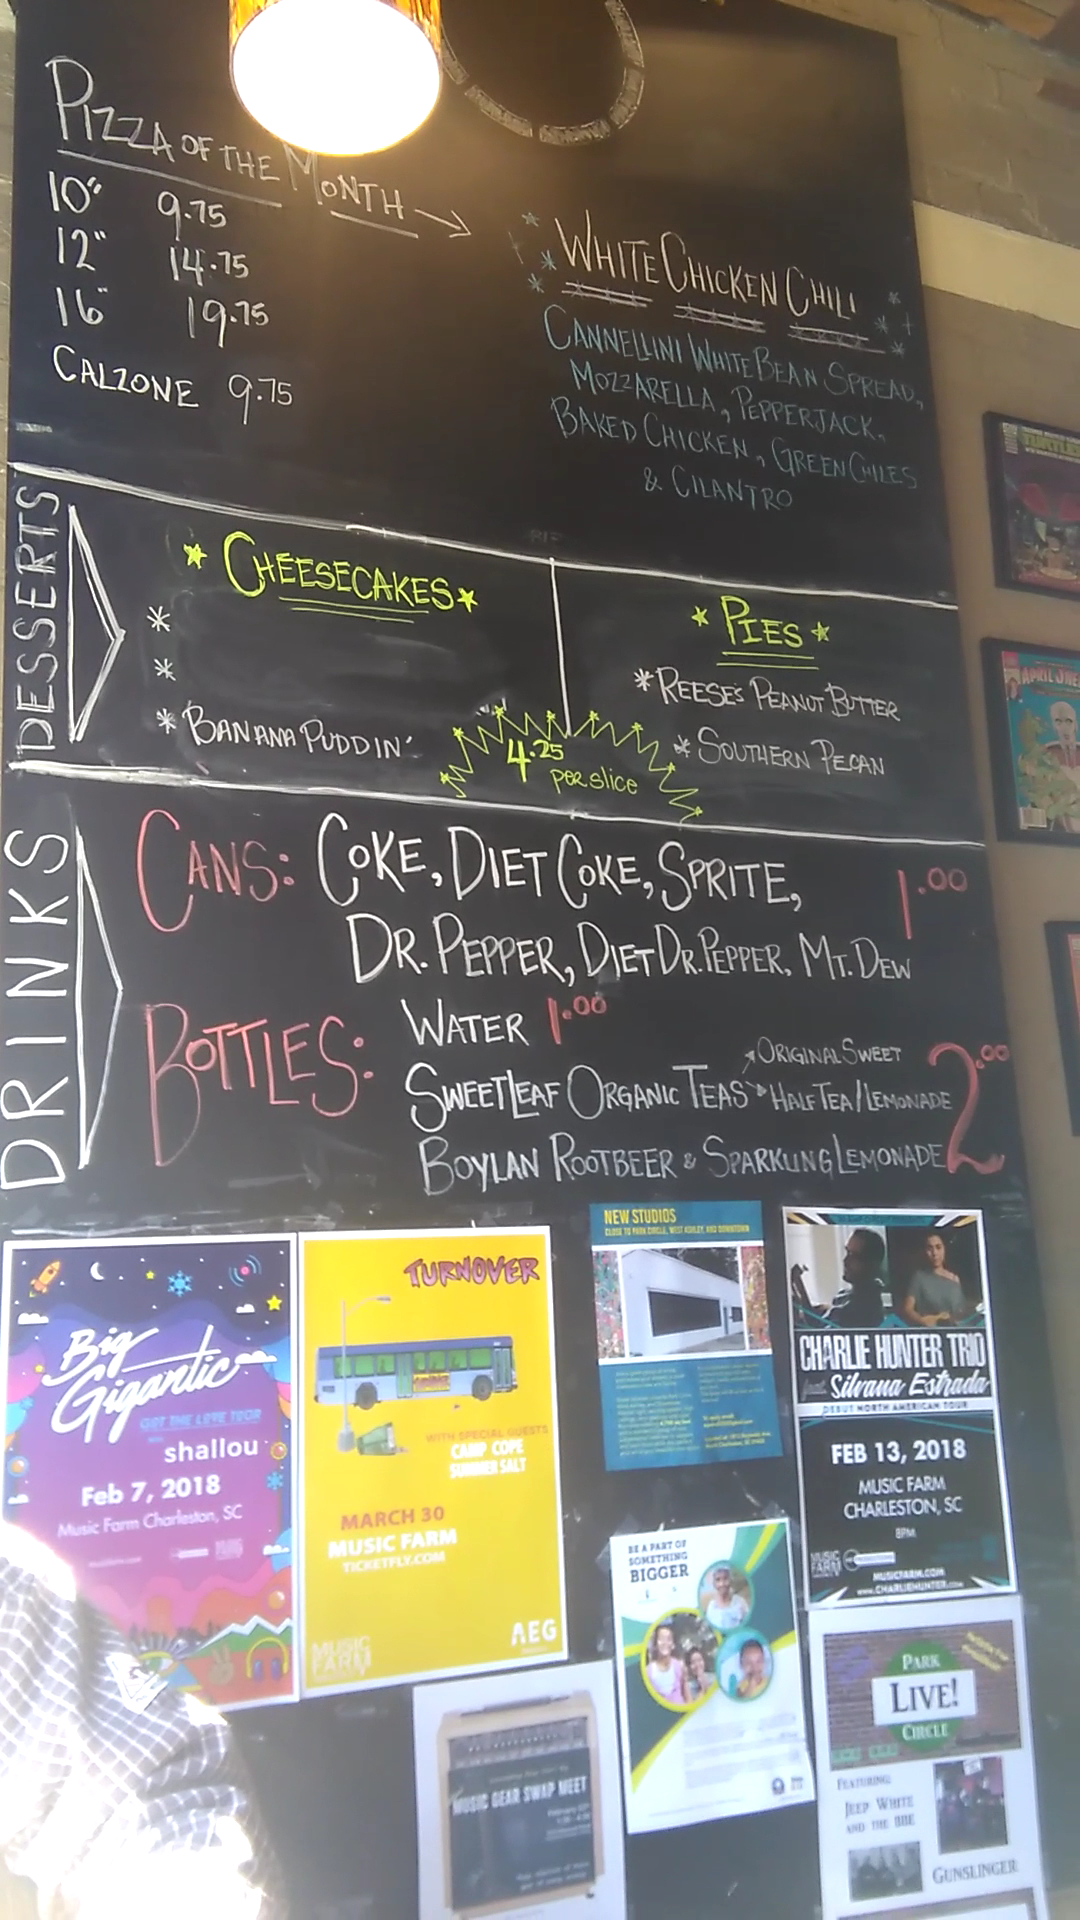 PIZZA OF THE MONTH →
10" 9.75
12" 14.75
16" 19.75
CALZONE 9.75
WHITE CHICKEN CHILI
CANNELLINI WHITE BEAN SPREAD,
MOZZARELLA, PEPPERJACK,
BAKED CHICKEN, GREEN CHILES
& CILANTRO
DESSERTS
* CHEESECAKES *
*
*
* BANANA PUDDIN'
* PIES *
* REESE'S PEANUT BUTTER
* SOUTHERN PECAN
4.25
per slice
DRINKS
CANS: COKE, DIET COKE, SPRITE, 1.00
DR. PEPPER, DIET DR. PEPPER, MT. DEW
BOTTLES: WATER 1.00
ORIGINAL SWEET
SWEETLEAF ORGANIC TEAS HALF TEA/LEMONADE 2.00
BOYLAN ROOTBEER & SPARKLING LEMONADE
Big
Gigantic
GOT THE LOVE TOUR
shallou
Feb 7, 2018
Music Farm Charleston, SC
TURNOVER
WITH SPECIAL GUESTS
CAMP COPE
SUMMER SALT
MARCH 30
MUSIC FARM
TICKETFLY.COM
MUSIC
FARM
AEG
NEW STUDIOS
CLOSE TO PARK CIRCLE, WEST ASHLEY, AND DOWNTOWN
CHARLIE HUNTER TRIO
feat. Silvana Estrada
DEBUT NORTH AMERICAN TOUR
FEB 13, 2018
MUSIC FARM
CHARLESTON, SC
8PM
MUSIC
FARM
MUSICFARM.COM
WWW.CHARLIEHUNTER.COM
BE A PART OF
SOMETHING
BIGGER
MUSIC GEAR SWAP MEET
PARK
LIVE!
CIRCLE
FEATURING:
JEEP WHITE
AND THE BBE
GUNSLINGER
TURTLES
APRIL O'NEIL